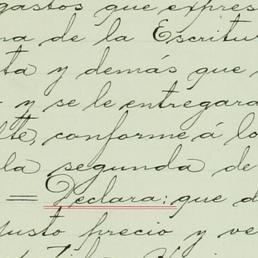 gastos que expres
na de la Escritu
ta y demás que
y se le entregara
te, conforme á lo
la segunda de
= Declara: que d
justo precio y ve